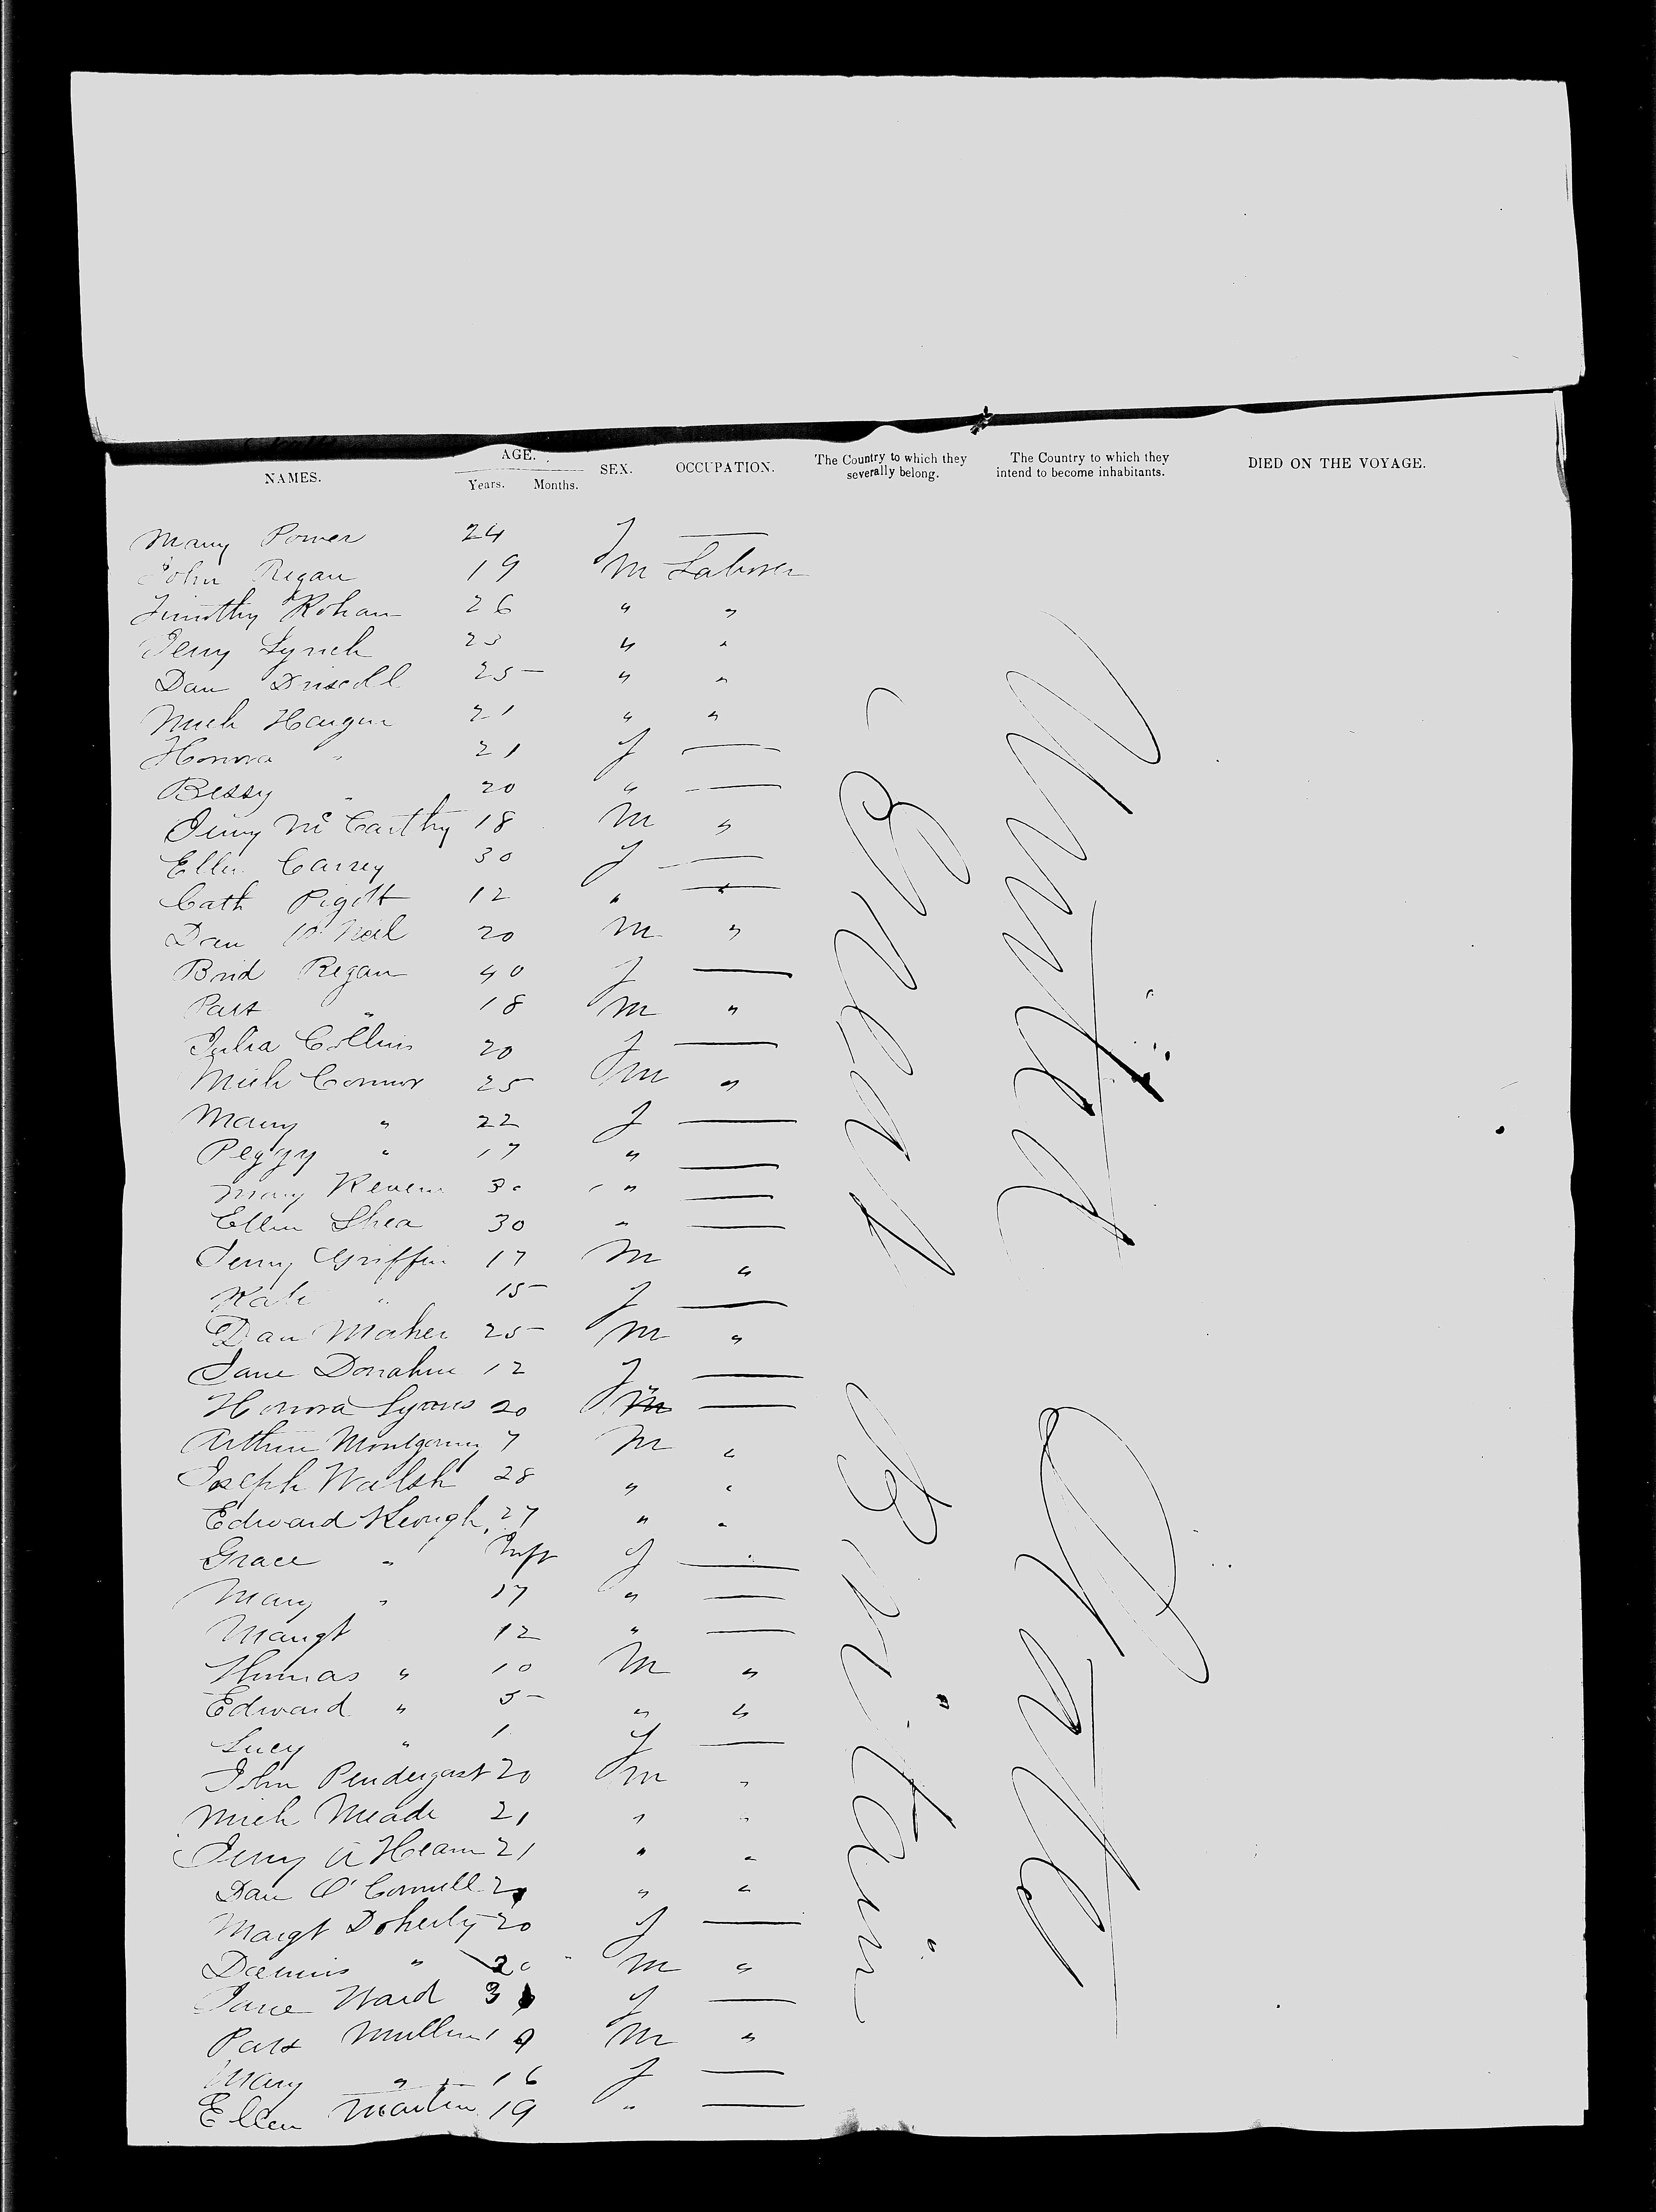 NAMES. AGE. Years. Months. SEX. OCCUPATION. The Country to which they severally belong. The Country to which they intend to become inhabitants. DIED ON THE VOYAGE.
Mary Power 24 f —
John Regan 19 M Laborer
Timothy Rohan 26 " "
Jerry Lynch 23 " "
Dan Driscoll 25 " "
Mich 21 " "
Honora " 21 f —
Bessy " 20 " —
Jerry McCarthy 18 M "
Ellen 30 f —
Cath Pigott 12 " "
Dan O'Neil 20 M "
Brid Regan 40 f —
Patt " 18 M "
Julia Collins 20 f —
Mich Connor 25 M "
Mary " 22 f —
Peggy " 17 " —
Mary 30 " —
Ellen Shea 30 " —
Jerry Griffin 17 M "
Kate " 15 f —
Dan Maher 25 M "
Jane Donahue 12 f —
Honora Lyons 20 " —
Arthur Montgomery 7 M "
Joseph Walsh 28 " "
Edward Keough 27 " "
Grace " Inft f —
Mary " 17 " —
Margt 12 " —
Thomas " 10 M "
Edward " 5 " "
Lucy " 1 f —
John Pendergast 20 M "
Mich Meade 21 " "
Jerry A Hearn 21 " "
Dan O'Connell " "
Margt Doherty 20 f —
Dennis " 20 M "
Jane Ward f —
Patt Mullin 19 M "
Mary " 16 f —
Ellen Martin 19 " —
Great Britain
United State